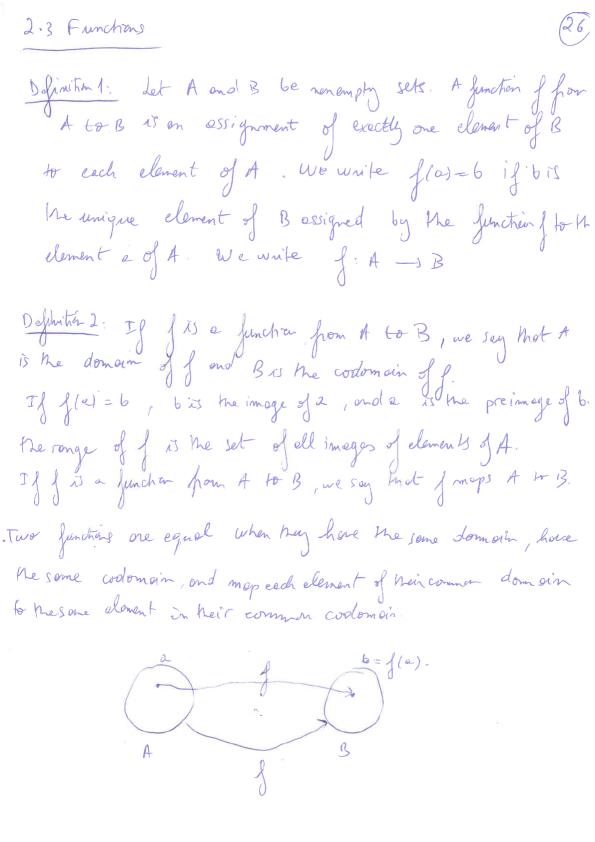 2.3 Functions
26
Definition 1: Let A and B be nonempty sets. A function f from
A to B is an assignment of exactly one element of B
to each element of A. We write f(a)=b if b is
the unique element of B assigned by the function f to th
element a of A. We write f: A → B
Definition 2: If f is a function from A to B, we say that A
is the domain of f and B is the codomain of f.
If f(a)=b, b is the image of a, and a is the preimage of b.
the range of f is the set of all images of elements of A.
If f is a function from A to B, we say that f maps A to B.
. Two functions are equal when they have the same domain, have
the same codomain, and map each element of their common domain
to the same element in their common codomain.
a f b = f(a).
A B
f